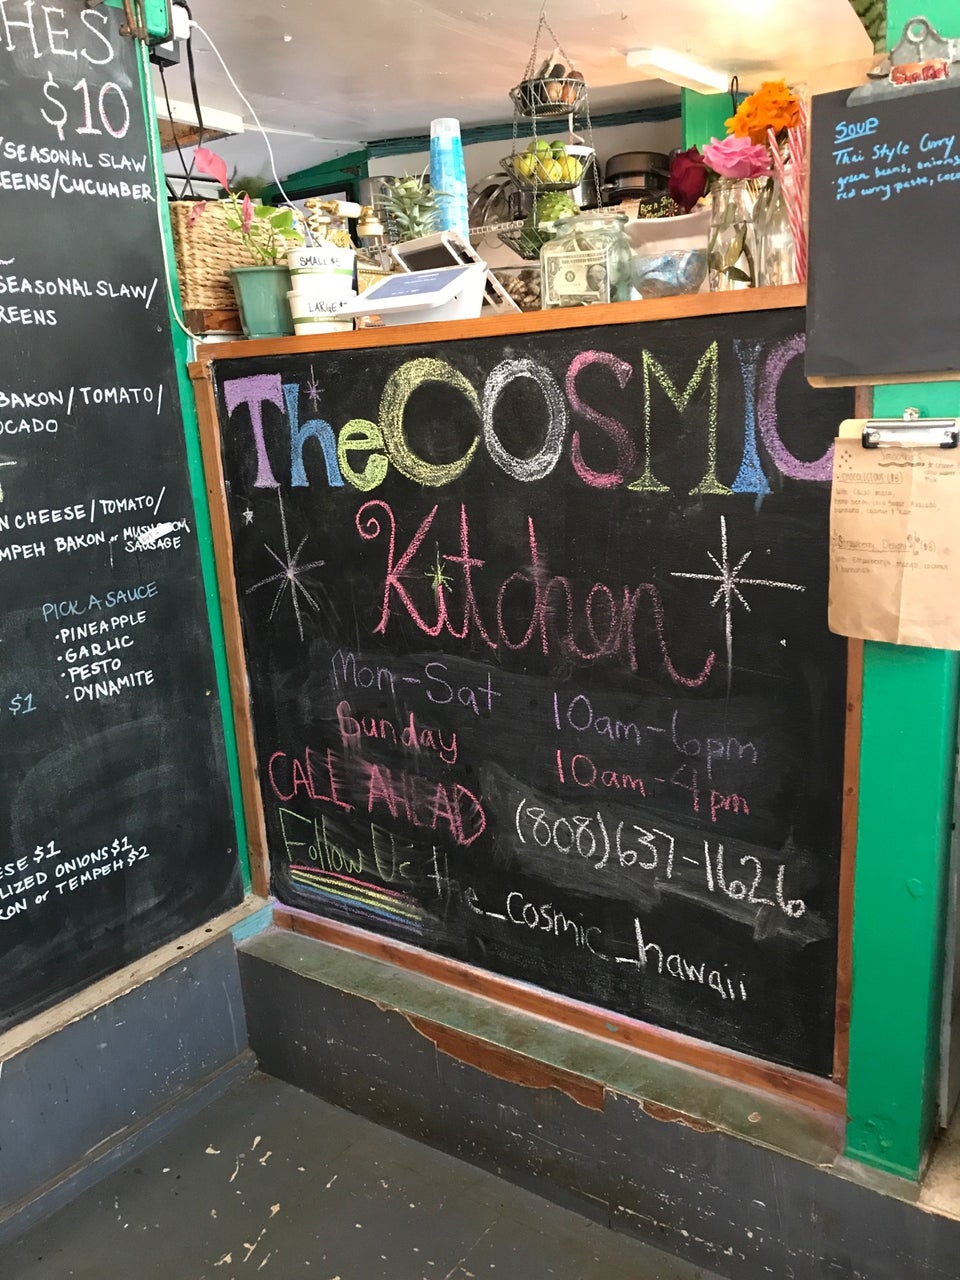 HES
$10
/SEASONAL SLAW
EENS/CUCUMBER
SEASONAL SLAW/
REENS
BAKON/TOMATO/
OCADO
N CHEESE/TOMATO/
MPEH BAKON or MUSHROOM
SAUSAGE
PICK A SAUCE
·PINEAPPLE
·GARLIC
·PESTO
·DYNAMITE
$1
ESE $1
LIZED ONIONS $1
KON or TEMPEH $2
SMALL
LARGE
The COSMIC
Kitchen
Mon-Sat 10am-6pm
Sunday 10am-4pm
CALL AHEAD (808)637-1626
Follow Us the_cosmic_hawaii
SOUP
Thai Style Curry
green beans, onions
red curry paste, coco
Smoothies